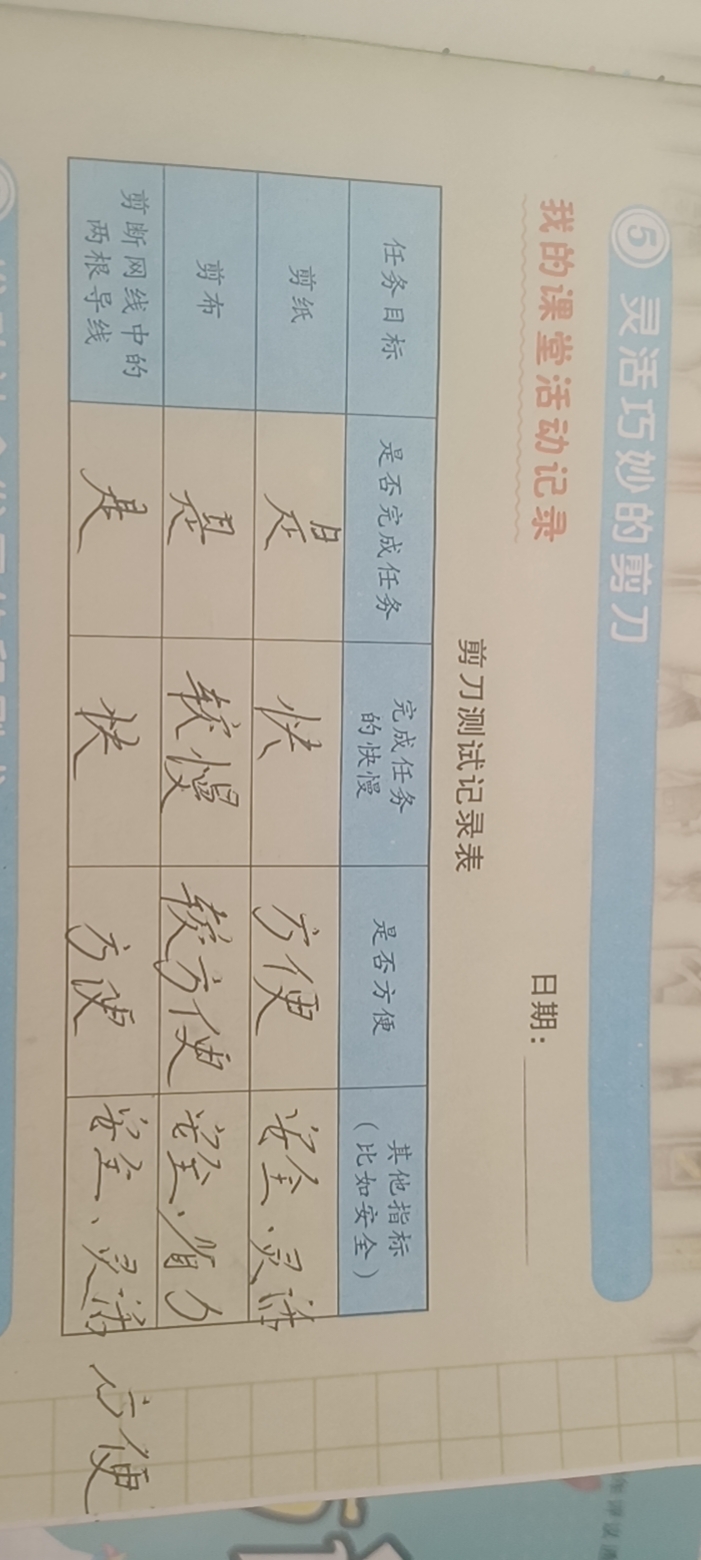 5 灵活巧妙的剪刀
我的课堂活动记录 日期：
剪刀测试记录表
任务目标 是否完成任务 完成任务的快慢 是否方便 其他指标（比如安全）
剪纸 是 快 方便 安全、灵活
剪布 是 较慢 较方便 安全、省力
剪断网线中的两根导线 是 快 方便 安全、灵活 方便